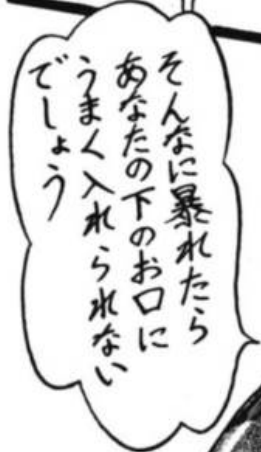 そんなに暴れたら
あなたの下のお口に
うまく入れられない
でしょう